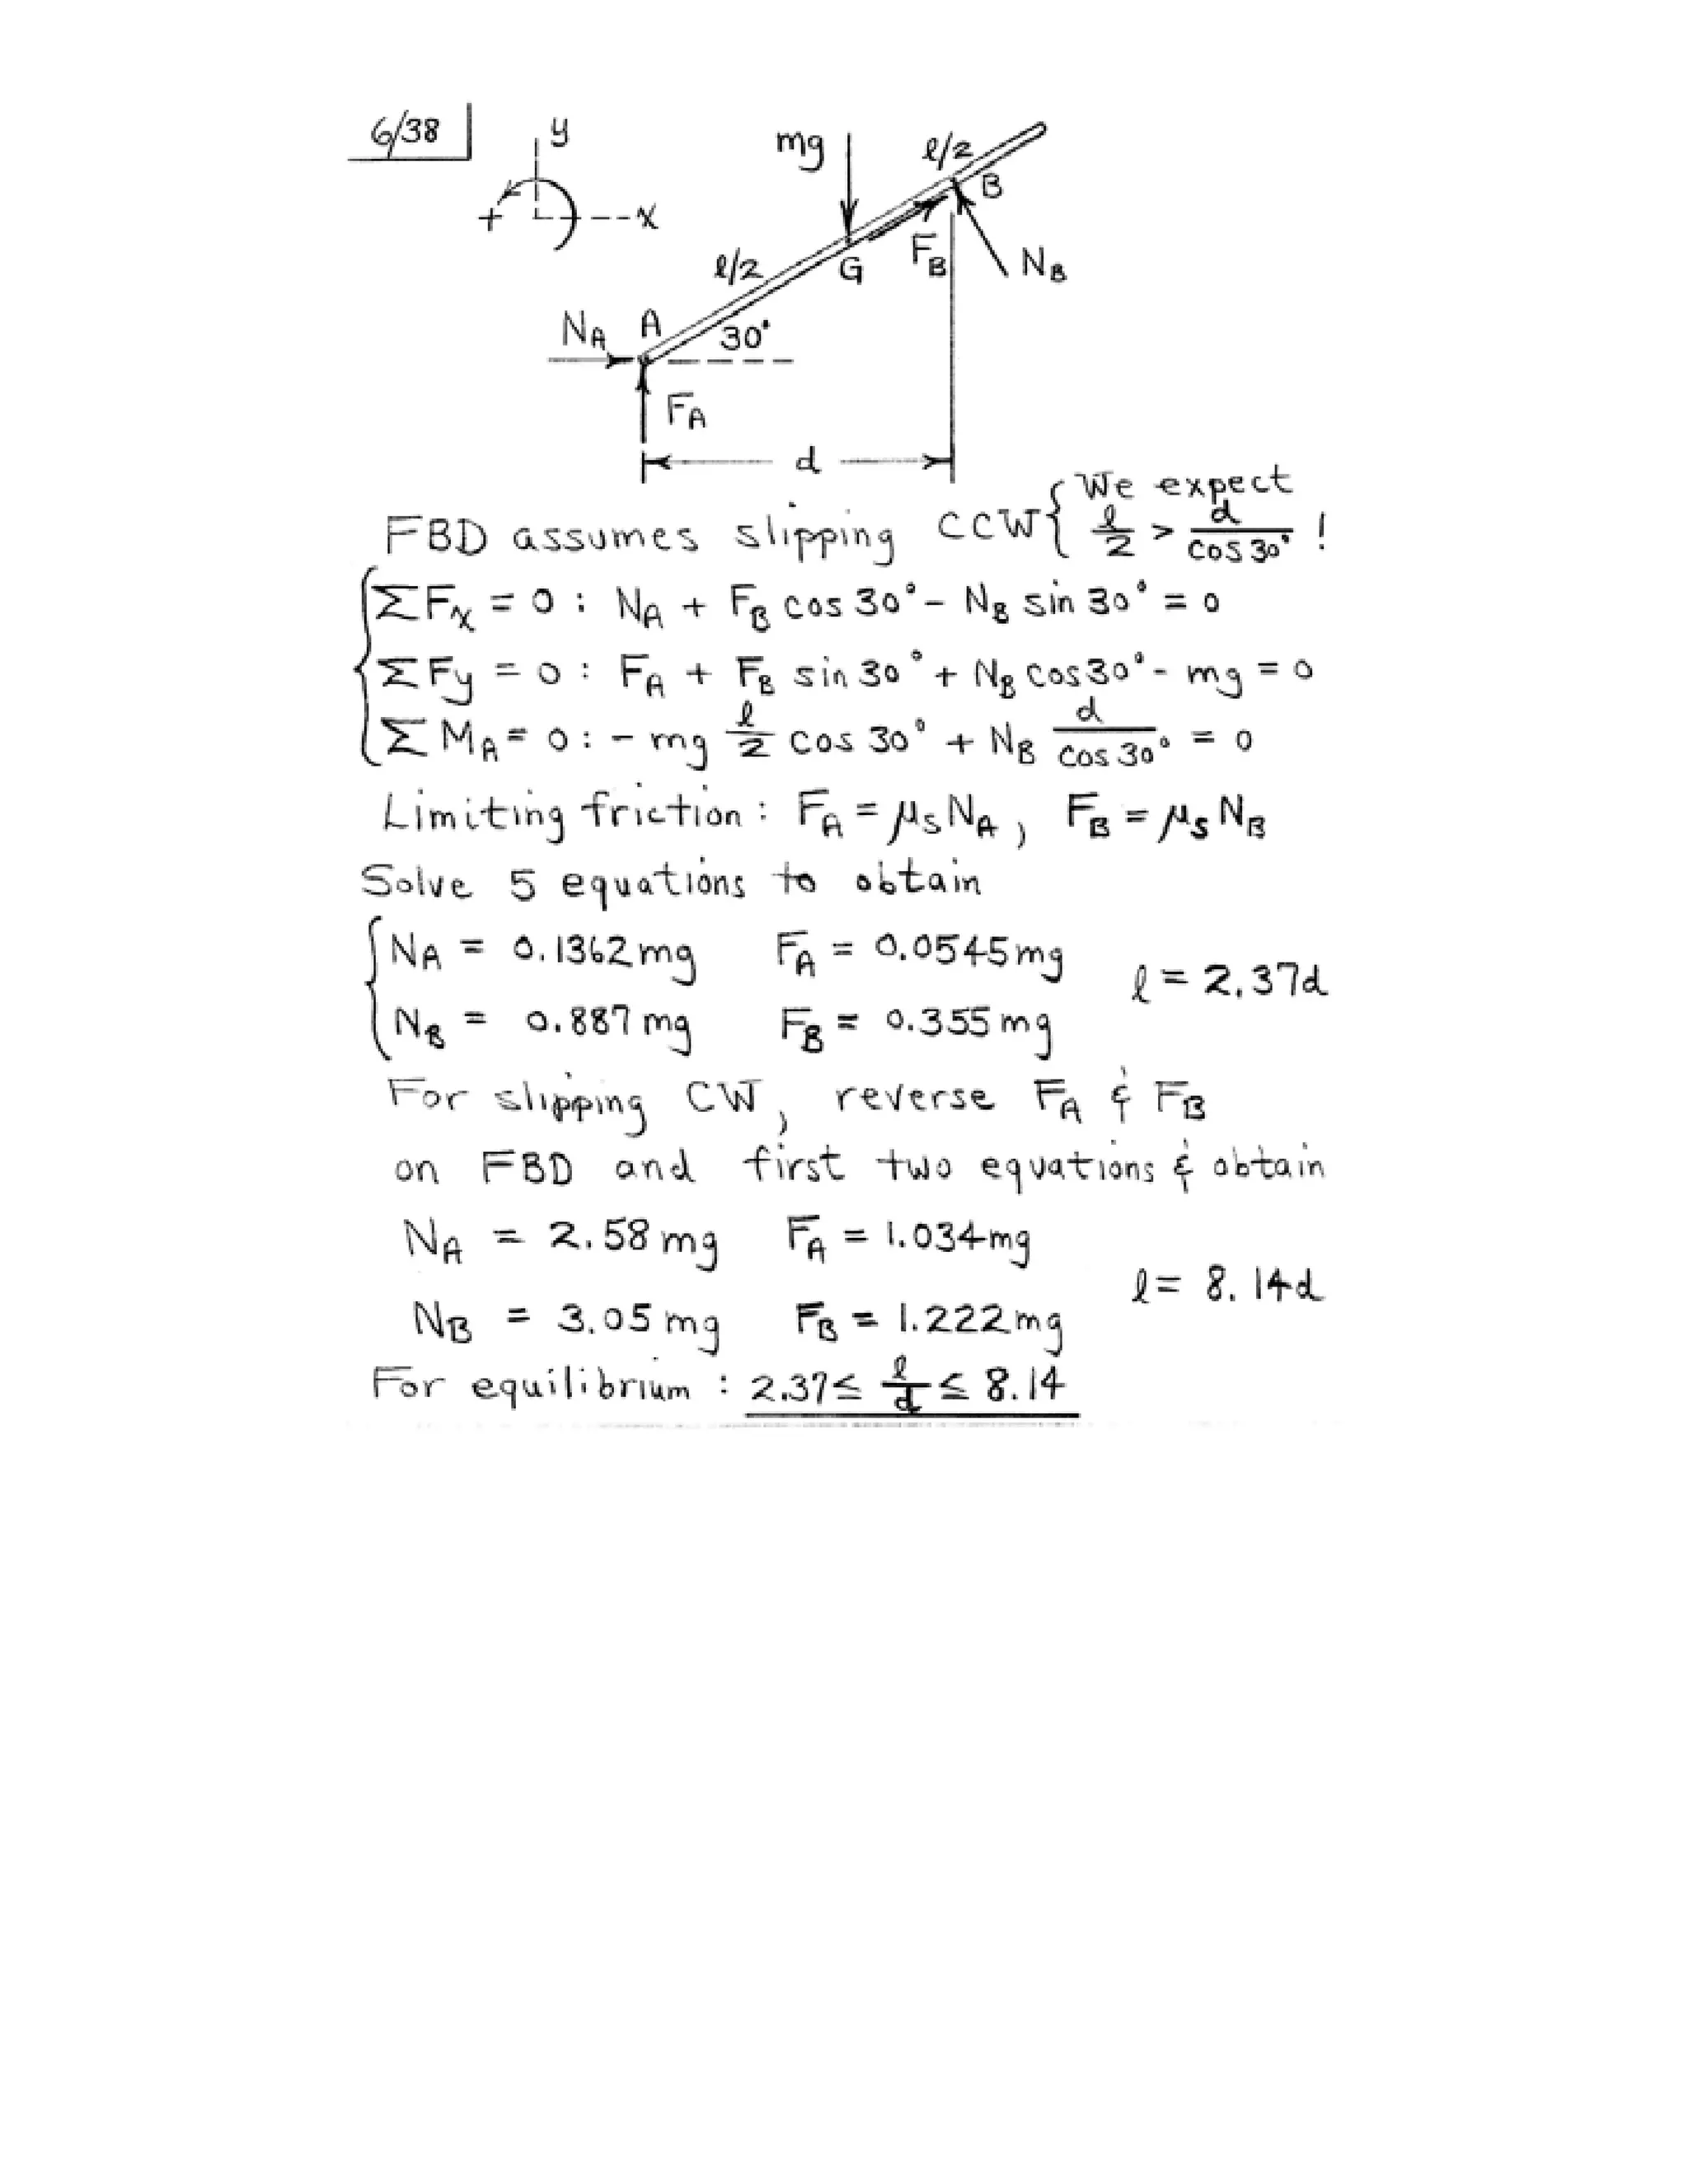 6/38
y
mg
l/2
B
+
x
l/2
G
F_B
N_B
N_A A
30°
F_A
d
FBD assumes slipping CCW { We expect l/2 > d/cos 30° !
ΣFx = 0 : N_A + F_B cos 30° - N_B sin 30° = 0
ΣFy = 0 : F_A + F_B sin 30° + N_B cos 30° - mg = 0
ΣM_A = 0 : - mg l/2 cos 30° + N_B d/cos 30° = 0
Limiting friction : F_A = μ_s N_A , F_B = μ_s N_B
Solve 5 equations to obtain
N_A = 0.1362 mg F_A = 0.0545 mg
l = 2.37d
N_B = 0.887 mg F_B = 0.355 mg
For slipping CW, reverse F_A & F_B
on FBD and first two equations & obtain
N_A = 2.58 mg F_A = 1.034 mg
l = 8.14d
N_B = 3.05 mg F_B = 1.222 mg
For equilibrium : 2.37 ≤ l/d ≤ 8.14